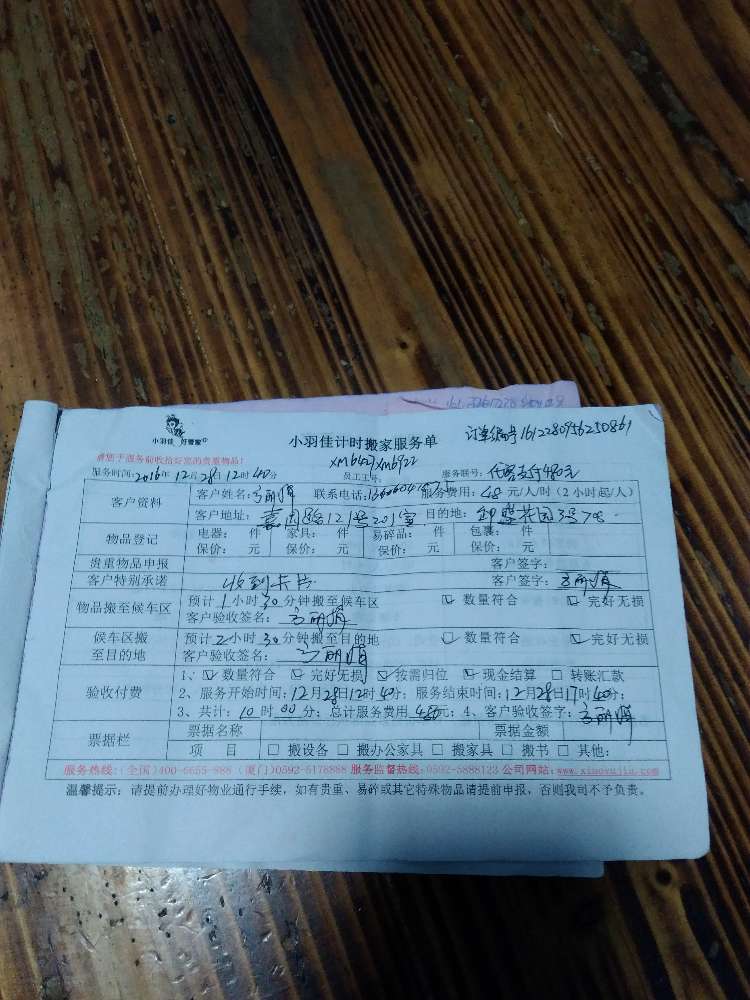 小羽佳 好管家
小羽佳计时搬家服务单 订单编号1612280956250861
请您于服务前收拾好您的贵重物品! xm6427xm6922
服务时间:2016年12月28日12时40分 员工工号: 服务联号:代客支付480元
客户资料 客户姓名: 联系电话: 服务费用:48元/人/时(2小时起/人)
客户地址:嘉园路121号201室 目的地:
物品登记 电器: 件 家具: 件 易碎品: 件 包裹: 件
保价: 元 保价: 元 保价: 元 保价: 元
贵重物品申报 客户签字:
客户特别承诺 收到卡片 客户签字:
物品搬至候车区 预计1小时30分钟搬至候车区 ☑ 数量符合 ☑ 完好无损
客户验收签名:
候车区搬至目的地 预计2小时30分钟搬至目的地 ☑ 数量符合 ☑ 完好无损
客户验收签名:
验收付费 1、☑ 数量符合 ☑ 完好无损 ☑ 按需归位 ☑ 现金结算 □ 转账汇款
2、服务开始时间:12月28日12时40分;服务结束时间:12月28日17时40分;
3、共计:10时00分;总计服务费用480元;4、客户验收签字:
票据栏 票据名称 票据金额
项 目 □ 搬设备 □ 搬办公家具 □ 搬家具 □ 搬书 □ 其他:
服务热线:(全国)400-6655-888 (厦门)0592-5178888 服务监督热线:0592-5888123 公司网站:www.xiaoyujia.com
温馨提示:请提前办理好物业通行手续,如有贵重、易碎或其它特殊物品请提前申报,否则我司不予负责。